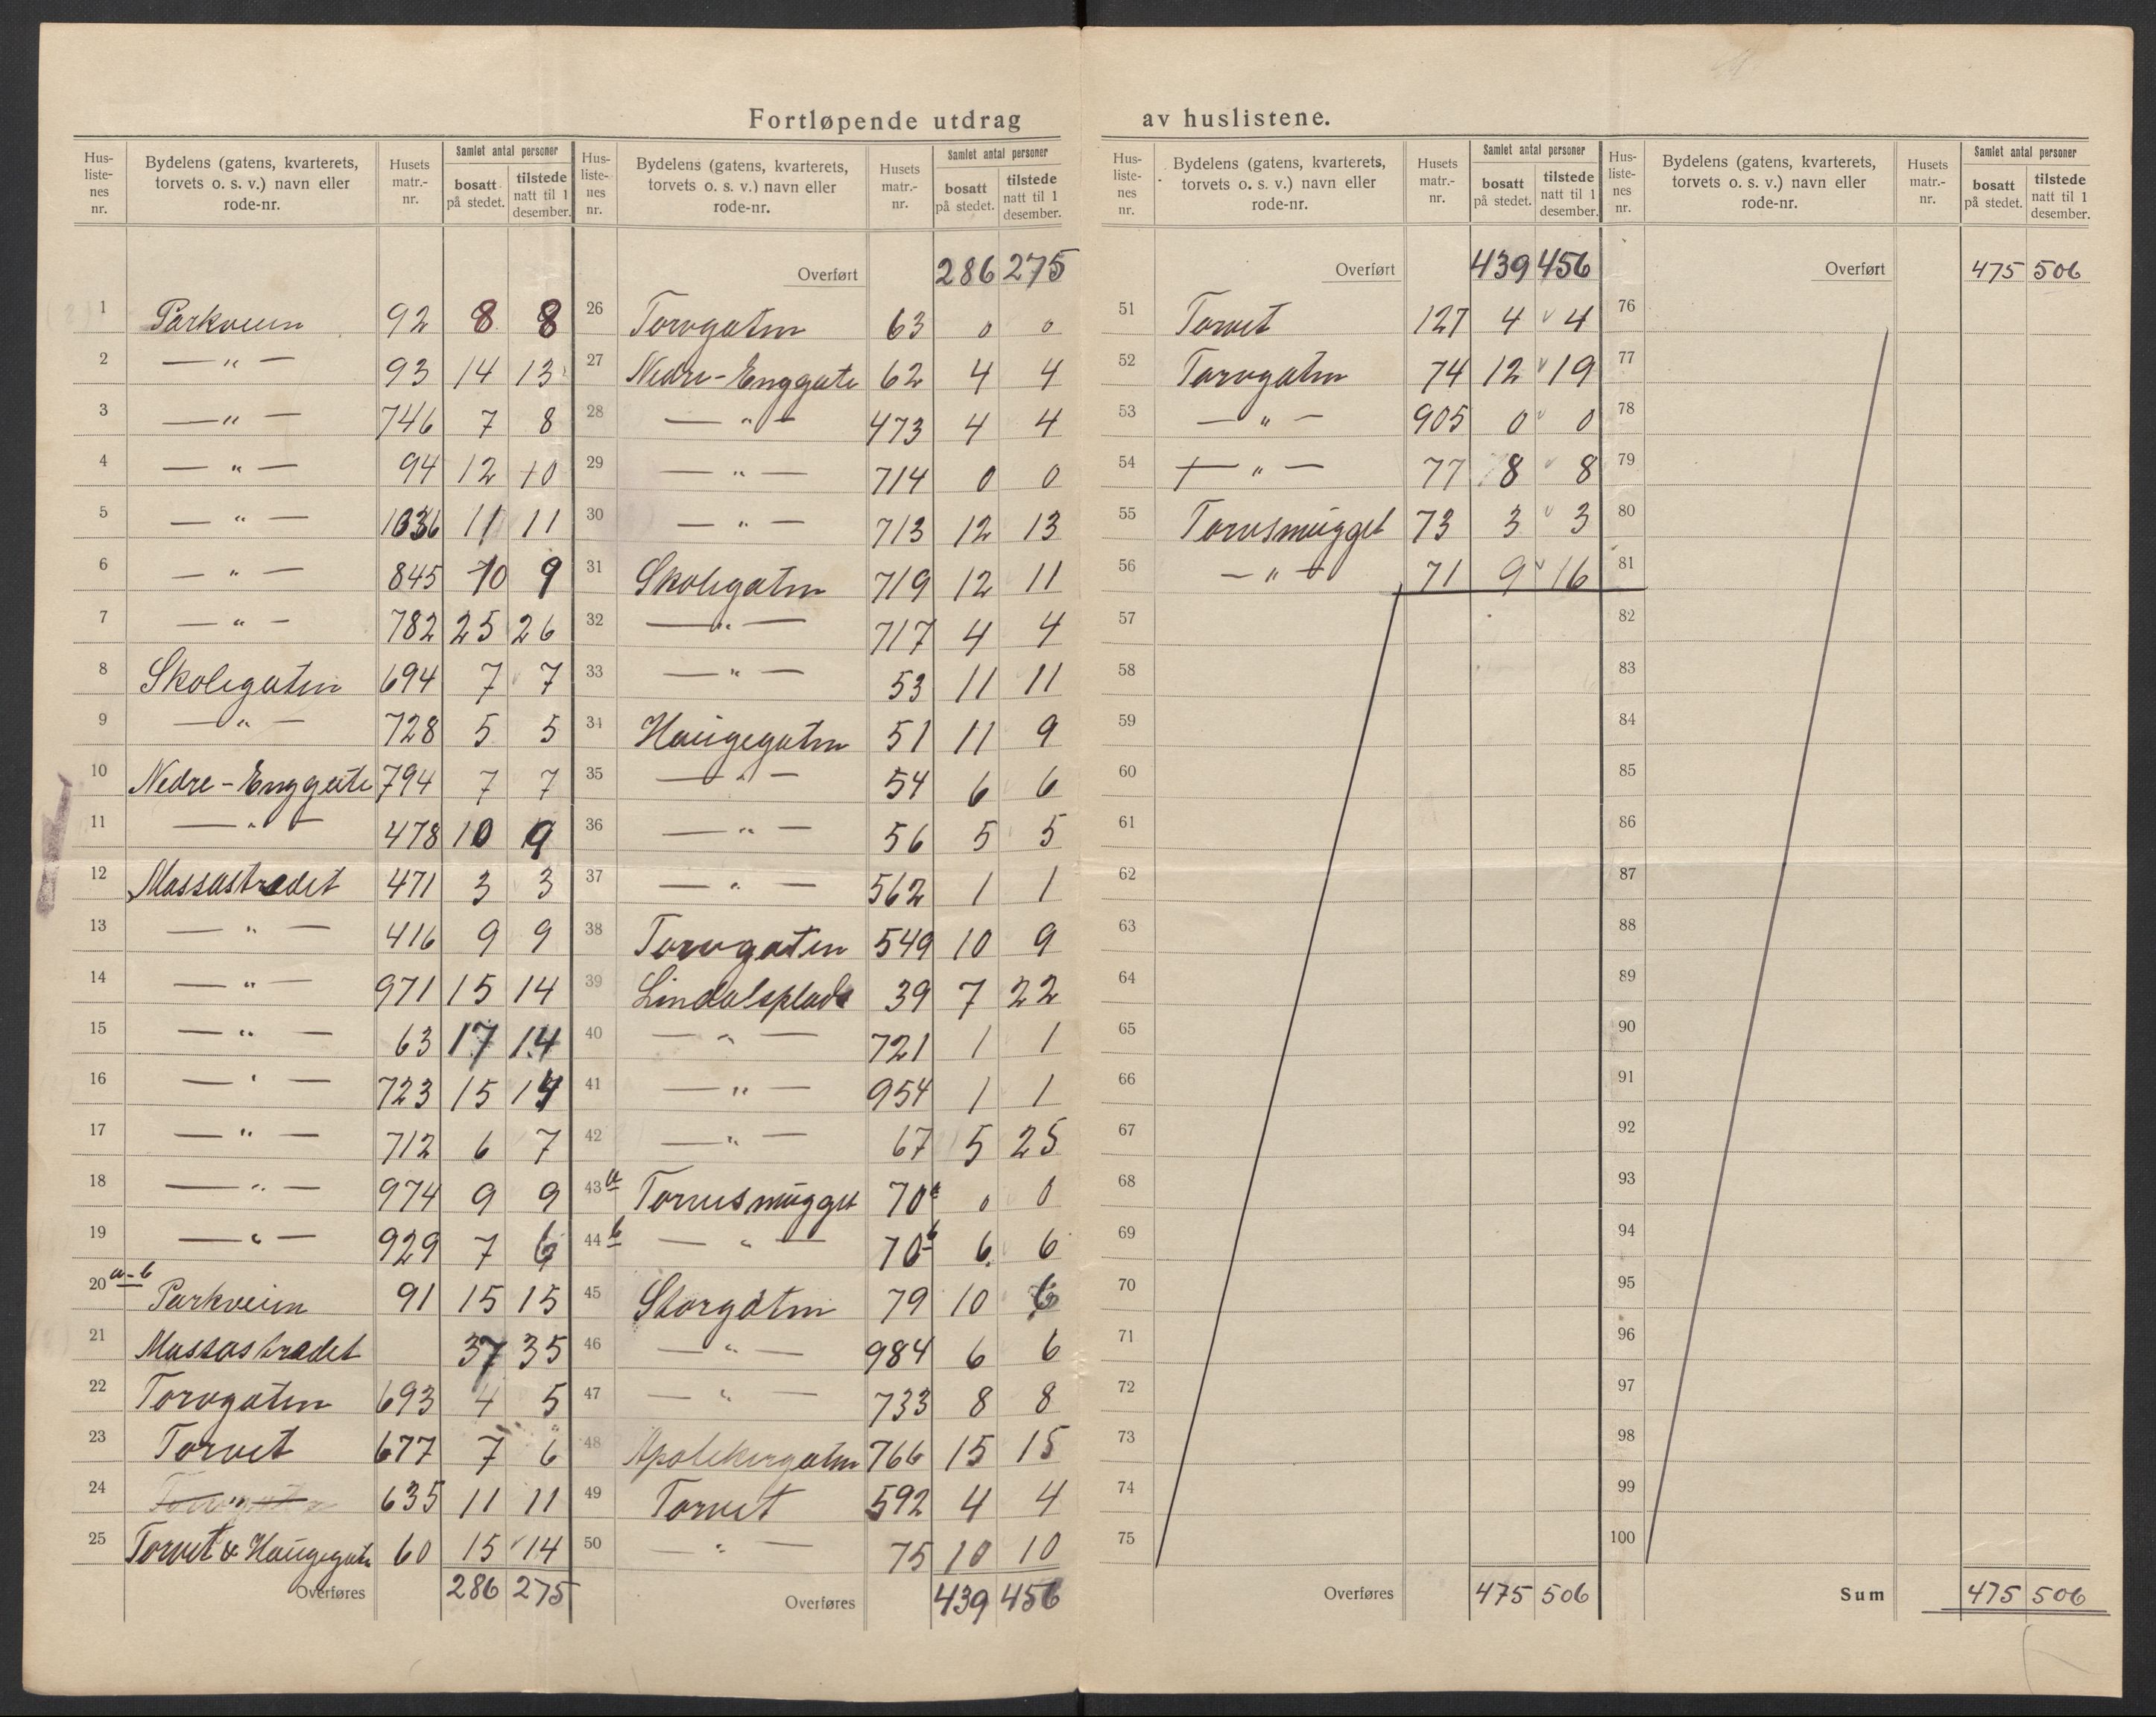 Fortløpende utdrag av huslistene.
Hus-listenes nr. Bydelens (gatens, kvarterets, torvets o. s. v.) navn eller rode-nr. Husets matr.-nr. Samlet antal personer bosatt på stedet. tilstede natt til 1 desember.
1 Parkveien 92 8 8
2 — " — 93 14 13
3 — " — 746 7 8
4 — " — 94 12 10
5 — " — 1036 11 11
6 — " — 845 10 9
7 — " — 782 25 26
8 Skolegaten 694 7 7
9 — " — 728 5 5
10 Nedre-Enggate 794 7 7
11 — " — 478 10 9
12 Massastrædet 471 3 3
13 — " — 416 9 9
14 — " — 971 15 14
15 — " — 63 17 14
16 — " — 723 15 14
17 — " — 712 6 7
18 — " — 974 9 9
19 — " — 929 7 6
20 a-b Parkveien 91 15 15
21 Massastrædet 37 35
22 Torvgaten 693 4 5
23 Torvet 677 7 6
24 635 11 11
25 Torvet & Haugegate 60 15 14
Overføres 286 275
Hus-listenes nr. Bydelens (gatens, kvarterets, torvets o. s. v.) navn eller rode-nr. Husets matr.-nr. Samlet antal personer bosatt på stedet. tilstede natt til 1 desember.
Overført 286 275
26 Torvgaten 63 0 0
27 Nedre-Enggate 62 4 4
28 — " — 473 4 4
29 — " — 714 0 0
30 — " — 713 12 13
31 Skolegaten 719 12 11
32 — " — 717 4 4
33 — " — 53 11 11
34 Haugegaten 51 11 9
35 — " — 54 6 6
36 — " — 56 5 5
37 — " — 562 1 1
38 Torvgaten 549 10 9
39 Lindalsplads 39 7 22
40 — " — 721 1 1
41 — " — 954 1 1
42 — " — 67 5 25
43 a Torvesmugget 70 a 0 0
44 b — " — 70 b 6 6
45 Storgaten 79 10 6
46 — " — 984 6 6
47 — " — 733 8 8
48 Apotekergaten 766 15 15
49 Torvet 592 4 4
50 — " — 75 10 10
Overføres 439 456
Hus-listenes nr. Bydelens (gatens, kvarterets, torvets o. s. v.) navn eller rode-nr. Husets matr.-nr. Samlet antal personer bosatt på stedet. tilstede natt til 1 desember.
Overført 439 456
51 Torvet 127 4 4
52 Torvgaten 74 12 19
53 — " — 905 0 0
54 — " — 77 8 8
55 Torvesmugget 73 3 3
56 — " — 71 9 16
57
58
59
60
61
62
63
64
65
66
67
68
69
70
71
72
73
74
75
Overføres 475 506
Hus-listenes nr. Bydelens (gatens, kvarterets, torvets o. s. v.) navn eller rode-nr. Husets matr.-nr. Samlet antal personer bosatt på stedet. tilstede natt til 1 desember.
Overført 475 506
76
77
78
79
80
81
82
83
84
85
86
87
88
89
90
91
92
93
94
95
96
97
98
99
100
Sum 475 506